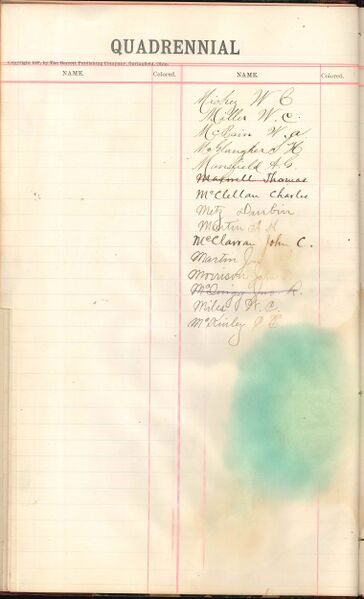 QUADRENNIAL
Copyright 1897, by The Barrett Publishing Company, Springfield, Ohio.
NAME. Colored. NAME. Colored.
Mickey W C
Miller W. C.
McBain W. A
McSlaugher H
Mansfield A C
Maxwell Thomas
McClellan Charles
Metz Durbin
Martin A H
McClarran John C.
Martin
Morrison
R.
Miles W. C.
McKinley